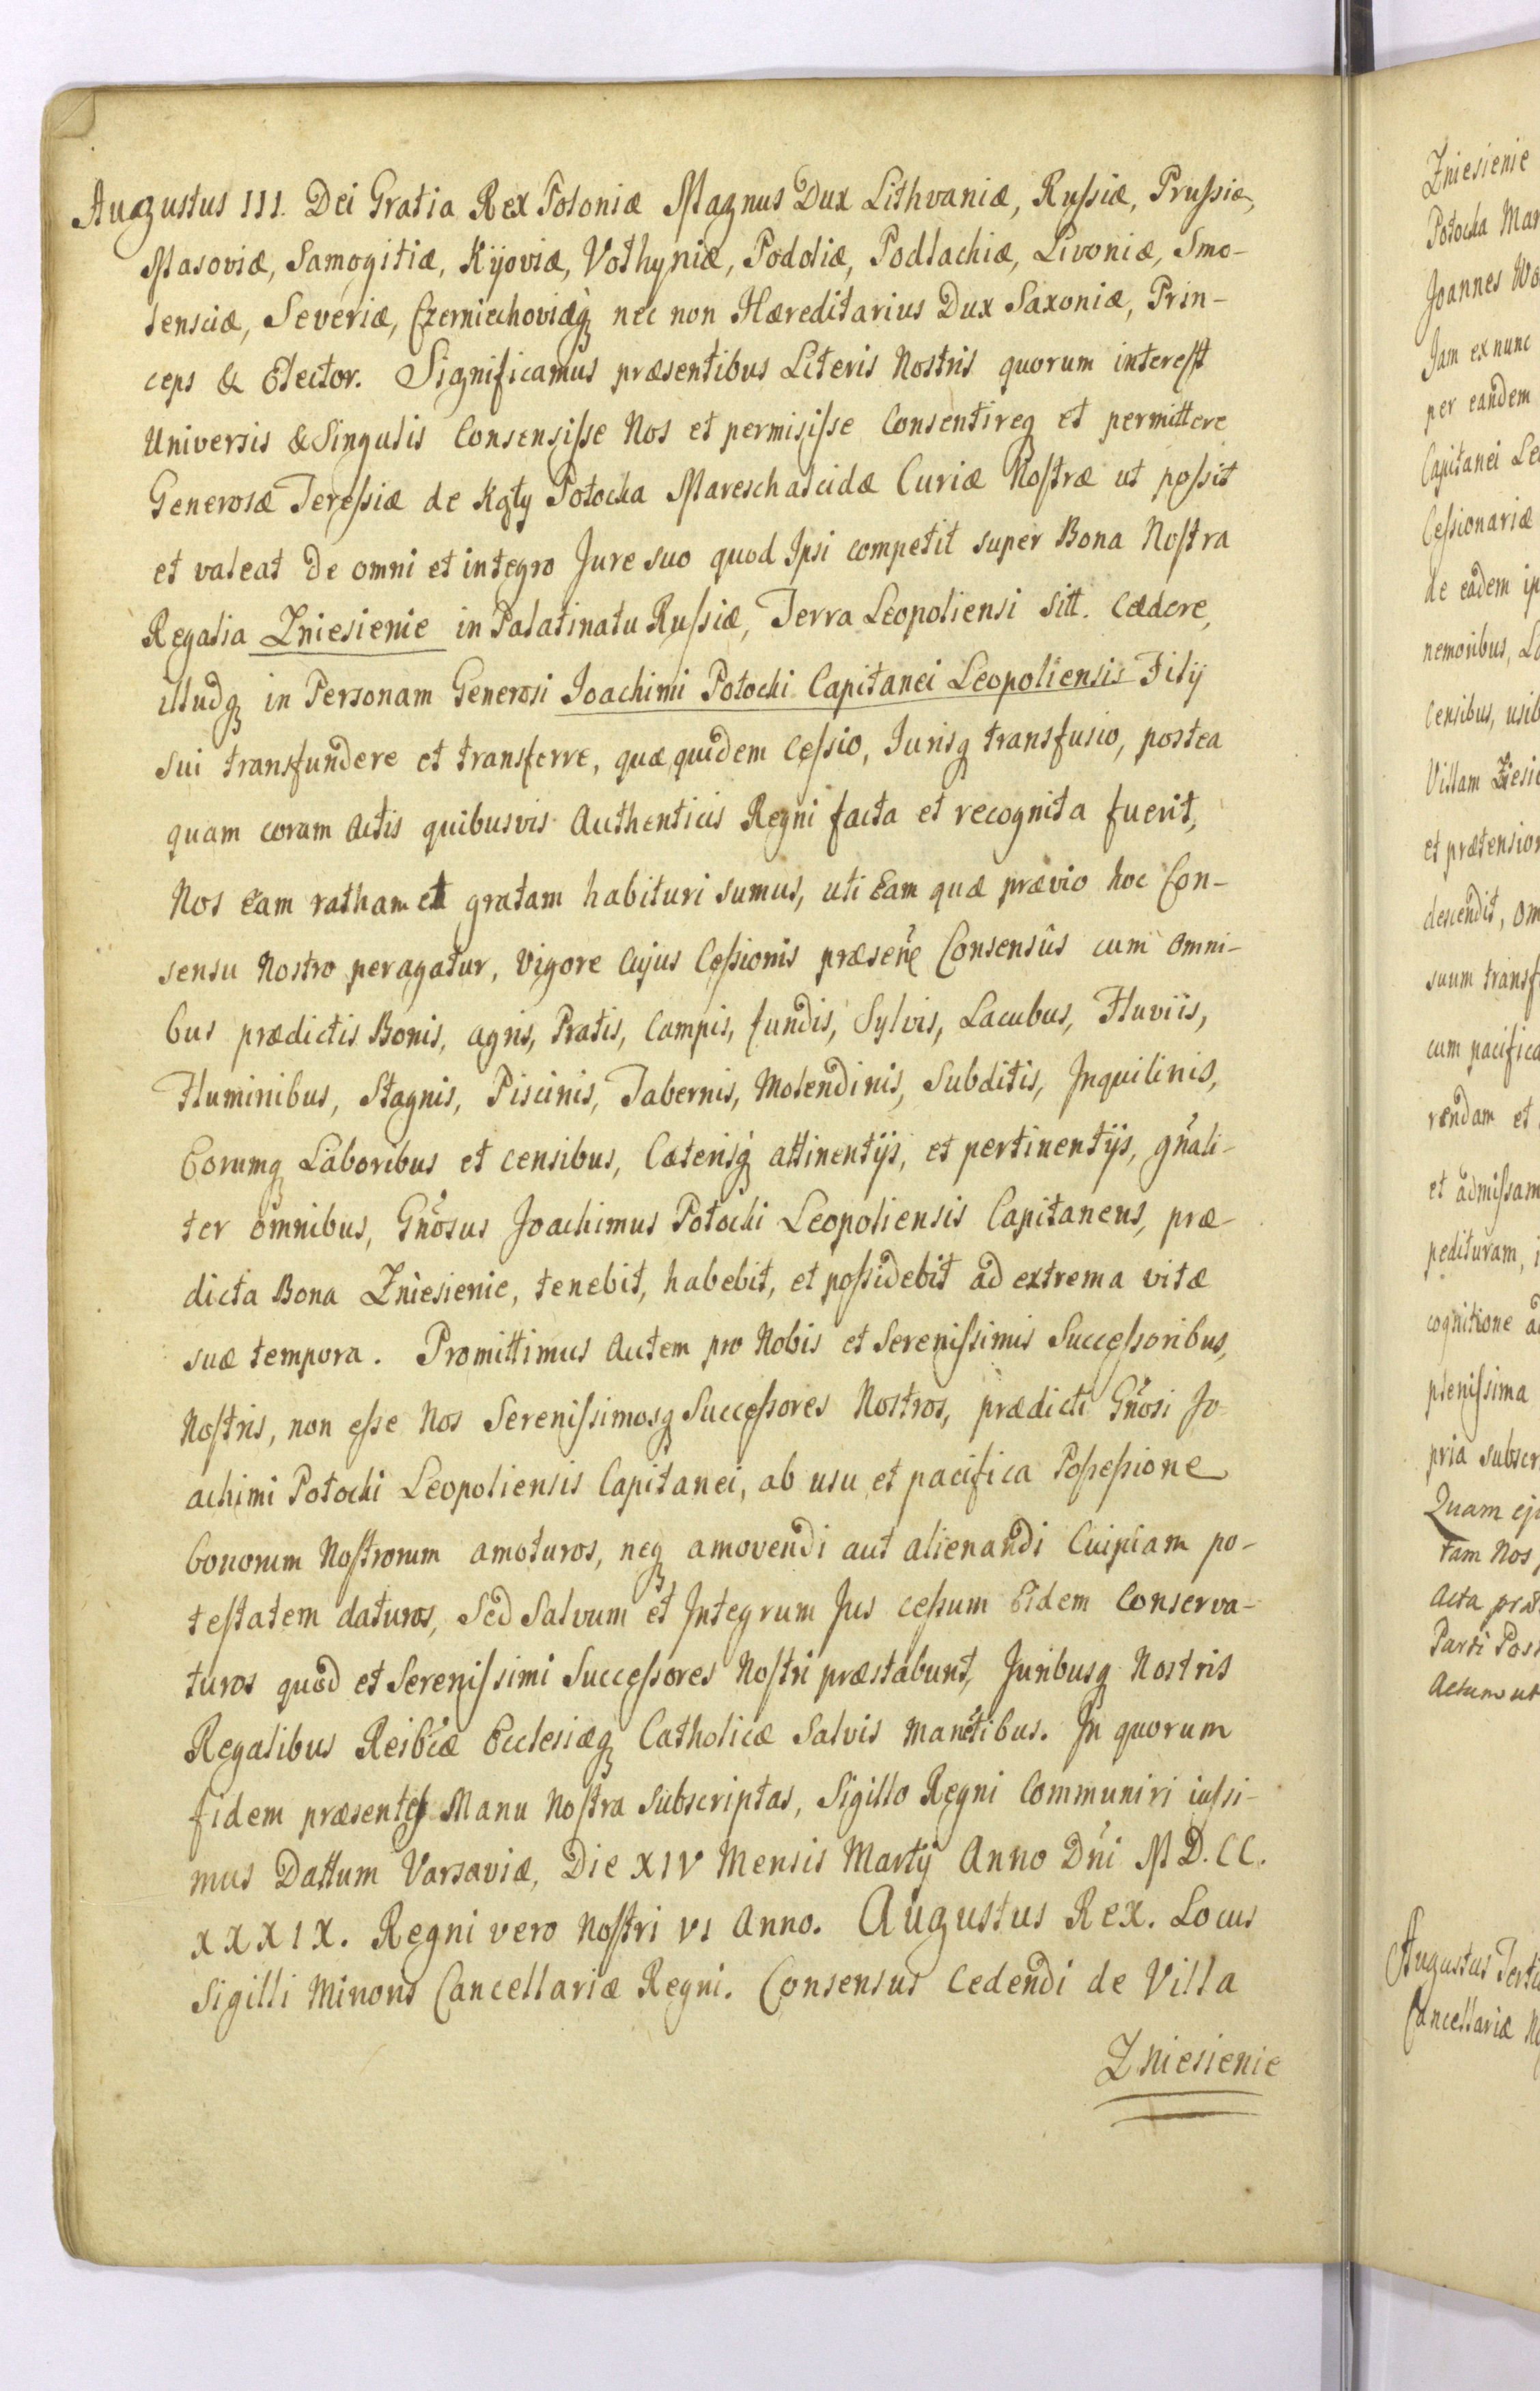 Augustus III. Dei Gratia Rex Poloniæ Magnus Dux Lithvaniæ, Rußiæ, Prußiæ,
Masoviæ, Samogitiæ, Kÿoviæ, Volhyniæ, Podoliæ, Podlachiæ, Livoniæ, Smo-
lensciæ, Severiæ, Czerniechoviæq nec non Hæreditarius Dux Saxoniæ, Prin-
ceps & Elector. Significamus præsentibus Literis Nostris quorum interest
Universis & Singulis Consensiße Nos et permisiße Consentireq et permittere
Generosæ Tereßiæ de Kąty Potocka Mareschalcidæ Curiæ Nostræ ut poßit
et valeat de omni et integro Jure suo quod Ipsi competit super Bona Nostra
Regalia Zniesienie in Palatinatu Rußiæ, Terra Leopoliensi sitt. Cædere,
illudq in Personam Generosi Joachimi Potocki Capitanei Leopoliensis Filij
sui transfundere et transferre, quæ quidem Ceßio, Jurisq transfusio, postea
quam coram Actis quibusvis Authenticis Regni facta et recognita fuerit,
Nos Eam ratham et gratam habituri sumus, uti Eam quæ prævio hoc Con-
sensu Nostro peragatur, Vigore Cujus Ceßionis Consensûs cum Omni-
bus prædictis Bonis, agris, Pratis, Campis, fundis, Sylvis, Lacubus, Fluviis,
Fluminibus, Stagnis, Piscinis, Tabernis, Molendinis, Subditis, Inquilinis,
Eorumq Laboribus et censibus, Cæterisq attinentijs, et pertinentijs, gñali-
ter omnibus, Gñosus Joachimus Potocki Leopoliensis Capitaneus, præ-
dicta Bona Zniesienie, tenebit, habebit, et poßidebit ad extrema vitæ
suæ tempora. Promittimus Autem pro Nobis et Serenißimis Succeßoribus,
Nostris, non eße Nos Serenißimosq Succeßores Nostros, prædicti Gñosi Jo-
achimi Potocki Leopoliensis Capitanei, ab usu et pacifica Poßeßione
bonorum Nostrorum amoturos, neq amovendi aut alienandi Cuipiam po-
testatem daturos, Sed Salvum et Integrum Jus ceßum Eidem Conserva-
turos quod et Serenißimi Succeßores Nostri præstabunt, Juribusq Nostris
Regalibus Reibcæ Ecclesiæq Catholicæ Salvis manetibus. In quorum
fidem præsentes Manu Nostra Subscriptas, Sigillo Regni Communiri iußi-
mus Dattum Varsaviæ, Die XIV Mensis Martÿ Anno Dñi M D. CC.
XXXIX. Regni vero Nostri VI Anno. Augustus Rex. Locus
Sigilli Minoris Cancellariæ Regni. Consensus Cedendi de Villa
Zniesienie
Zniesienie
Potocka Mar
Joannes Wo
Jam ex nunc
per eandem
Capitanei Le
Ceßionariæ
de eadem ip
nemoribus, La
Censibus, usib
Villam
et prætension
descendit, om
suum transf
cum pacifica
rendam et
et admißam
pedituram, i
cognitione a
plenißima
pria subscr
Quam
tam Nos
Acta
Parti
Actum ut
Augustus Terti
Cancellariæ